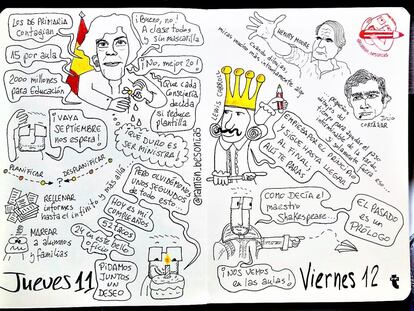 LOS DE PRIMARIA
CONTAGIAN
15 POR AULA
2000 millones
PARA EDUCACIÓN
¡BUENO, NO!
A CLASE TODOS
Y SIN MASCARILLA
¡NO, MEJOR 20!
¡QUE CADA
CONSEJERÍA
DECIDA
SI REDUCE
PLANTILLA
¡QUÉ DURO ES
SER MINISTRA!
¡VAYA
SEPTIEMBRE
NOS ESPERA!
PLANIFICAR
DESPLANIFICAR
RELLENAR
informes
HASTA EL INFINITO y más allá
MAREAR
A alumnos
y familias
PERO OLVIDÉMONOS
UNOS SEGUNDOS
de todo esto
HOY ES MI
CUMPLEAÑOS
52 TACOS
24 EN ESTE BELLO
OFICIO
PIDAMOS
JUNTOS UN
DESEO
Jueves 11
@ramon_besonias
HENRY MOORE
LEWIS CARROLL
EMPIEZA POR EL PRINCIPIO
Y SIGUE HASTA LLEGAR
AL FINAL; ALLÍ
TE PARAS
JULIO
CORTÁZAR
COMO DECÍA EL
maestro
Shakespeare...
EL PASADO
ES UN
PRÓLOGO
¡NOS VEMOS
EN LAS AULAS!
Viernes 12